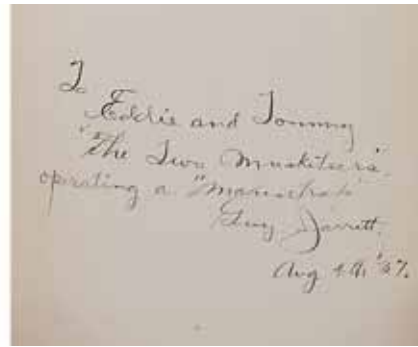 To
Eddie and Tommy
"The Two Musketeers"
operating a
Guy Jarrett.
Aug 4th '37.